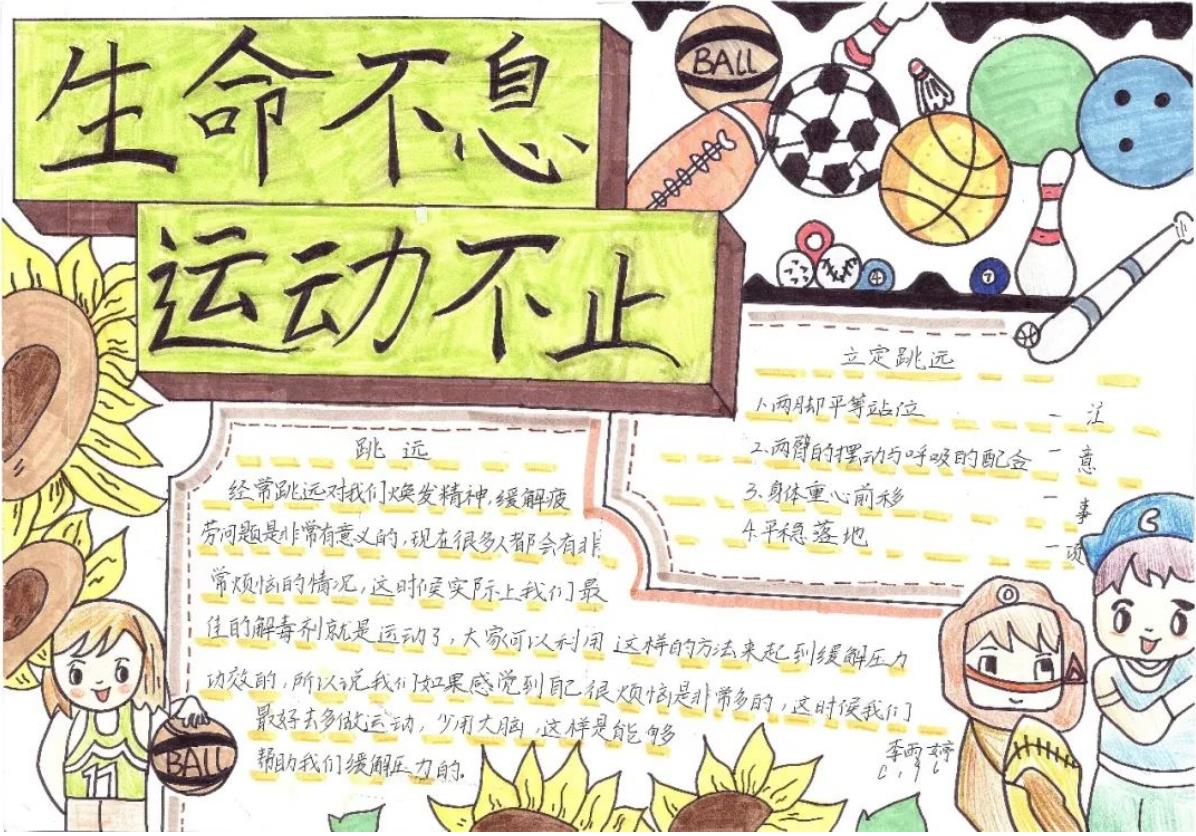 生命不息
运动不止
BALL
4
7
立定跳远
1.两脚平等站位
2.两臂的摆动与呼吸的配合
3.身体重心前移
4.平稳落地
注意事项
跳远
经常跳远对我们焕发精神,缓解疲
劳问题是非常有意义的,现在很多人都会有非
常烦恼的情况,这时候实际上我们最
佳的解毒剂就是运动了,大家可以利用这样的方法来起到缓解压力
功效的,所以说我们如果感觉到自己很烦恼是非常多的,这时候我们
最好去多做运动,少用大脑,这样是能够
帮助我们缓解压力的.
李雨婷
BALL
11
C